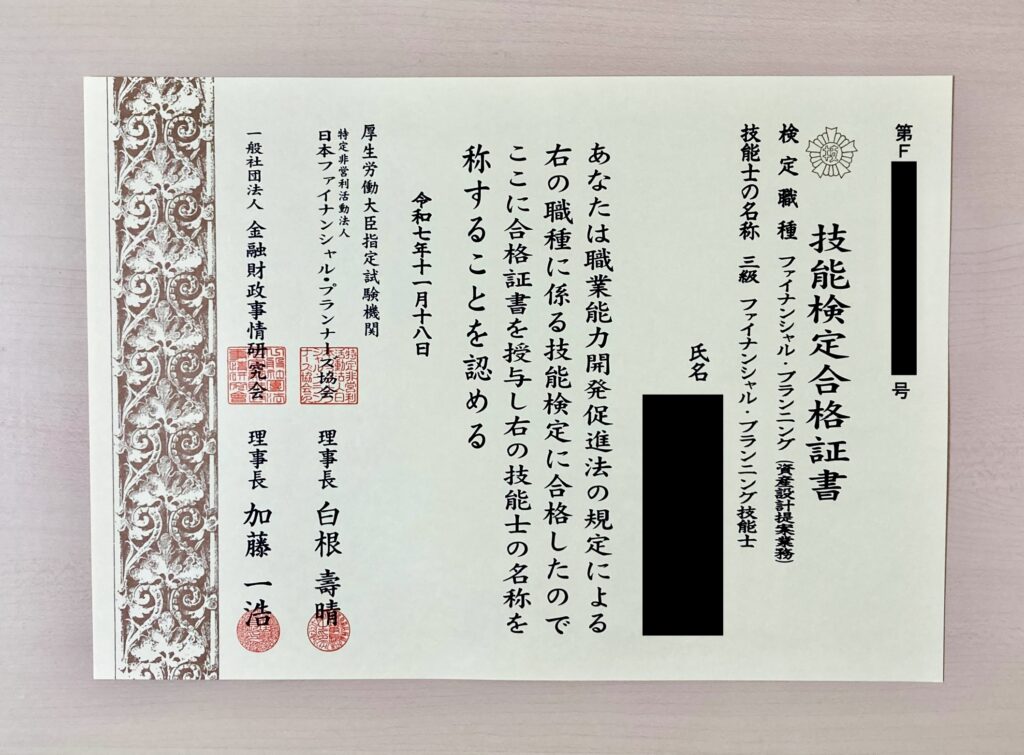 第F
号
技能検定合格証書
検定職種 ファイナンシャル・プランニング(資産設計提案業務)
技能士の名称 三級 ファイナンシャル・プランニング技能士
氏名
あなたは職業能力開発促進法の規定による
右の職種に係る技能検定に合格したので
ここに合格証書を授与し右の技能士の名称を
称することを認める
令和七年十一月十八日
厚生労働大臣指定試験機関
特定非営利活動法人
日本ファイナンシャル・プランナーズ協会 理事長 白根 壽晴
一般社団法人 金融財政事情研究会 理事長 加藤 一浩